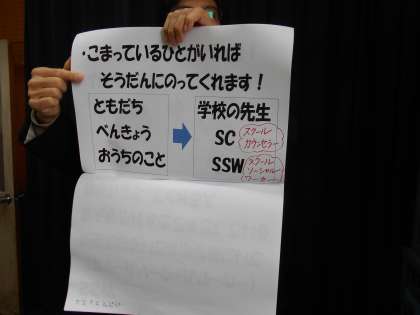 ・こまっているひとがいれば
そうだんにのってくれます！
ともだち
べんきょう
おうちのこと
学校の先生
SC
スクール
カウンセラー
SSW
スクール
ソーシャル
ワーカー